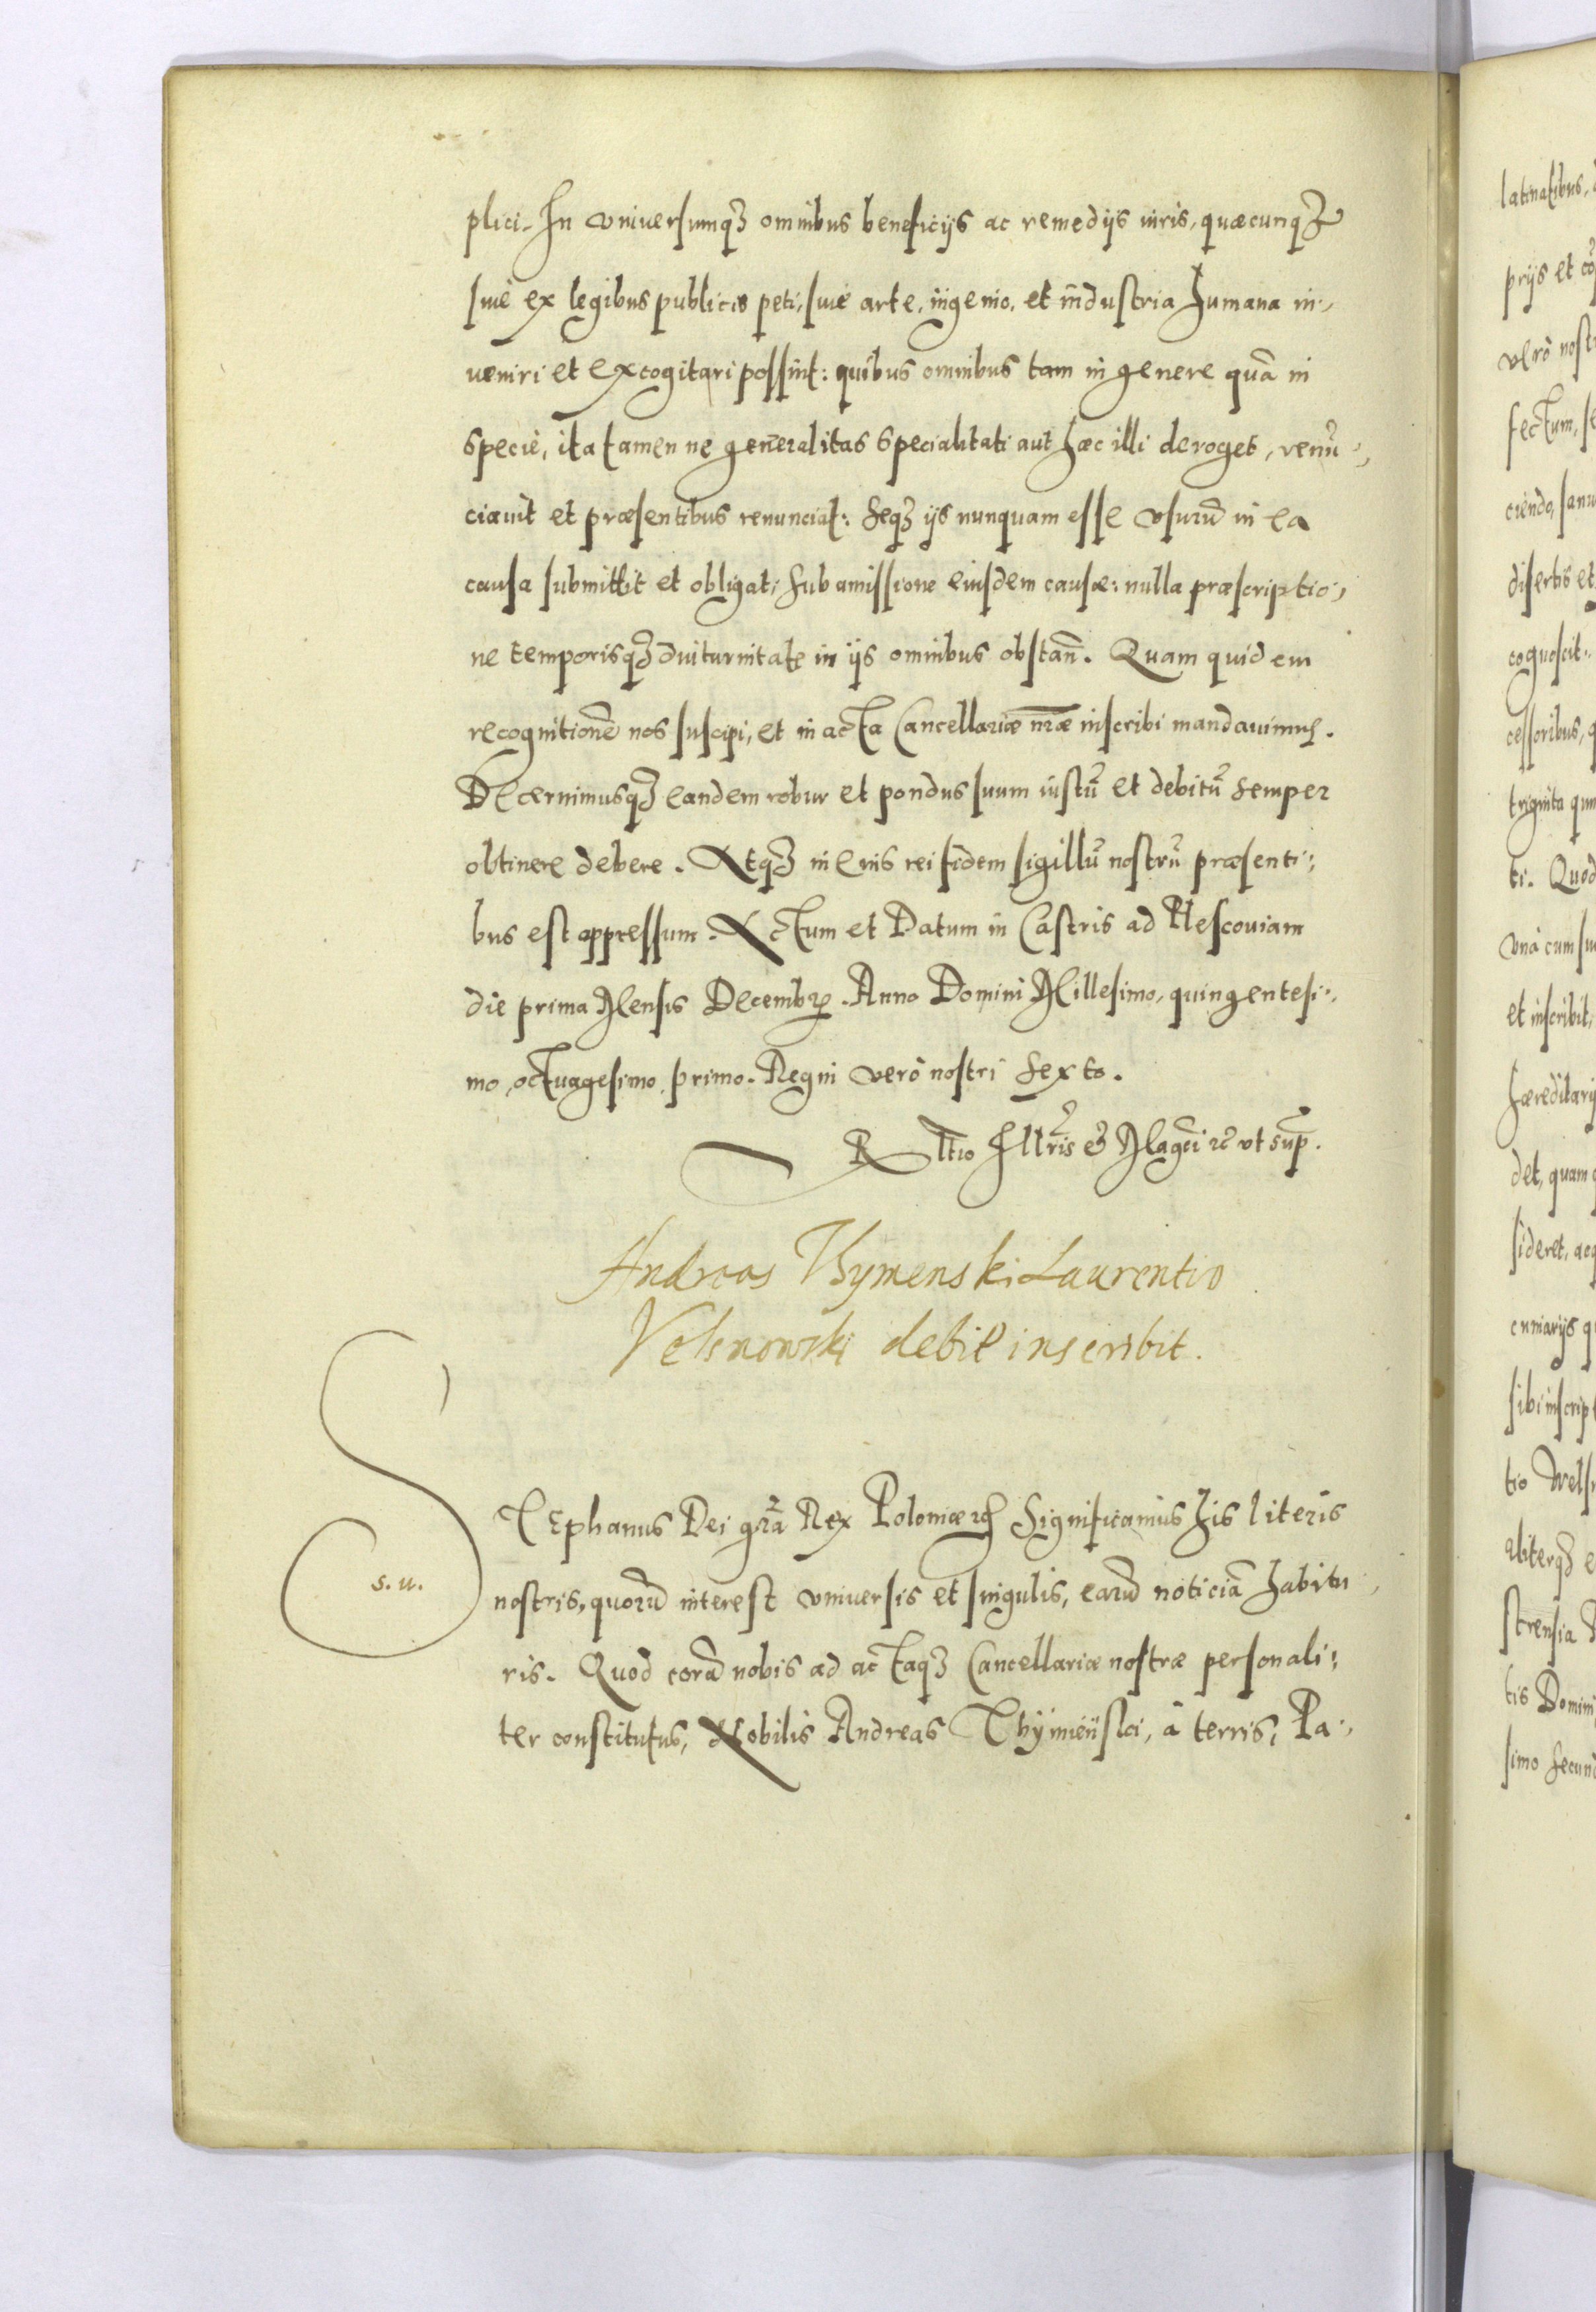 plici. In vniuersumq₃ omnibus beneficijs ac remedijs iuris, quæcunq₃
siue ex legibus publicis peti, siue arte, ingenio, et industria humana in-
ueniri et excogitari possint: quibus omnibus tam in genere quā in
specie, ita tamen ne generalitas specialitati aut hæc illi deroget, renū-
ciauit et præsentibus renunciat: seq₃ ijs nunquam esse vsurū in ea
causa submittit et obligat, sub amissione eiusdem causæ: nulla præscriptio-
ne temporisq₃ diuturnitate in ijs omnibus obstan̄. Quam quidem
recognitionē nos suscipi, et in acta Cancellariæ nr̄æ inscribi mandauimus.
Decernimusq₃ eandem robur et pondus suum iustū et debitū semper
obtinere debere. Atq₃ in eius rei fidem sigillū nostrū præsenti-
bus est appressum. Actum et Datum in Castris ad Plescouiam
die prima Mensis Decembr. Anno Domini Millesimo, quingentesi-
mo, octuagesimo primo. Regni verò nostri sexto.
Rltio Illris & Magci ꝛc vt sup.
Andreas Thymenski Laurentio
Velsnowski debit inscribit.
STEphanus Dei gr̄a Rex Poloniæ ꝛc Significamus his literis
s. u.
nostris, quorū interest vniuersis et singulis, earū noticiā habitu-
ris. Quod corā nobis ad actaq₃ Cancellariæ nostræ personali-
ter constitutus, Nobilis Andreas Thÿmieński, à terris, Pa-
latinatibus,
prijs et
verò nost
fectum, se
ciendo,
disertis et
cognoscit
cessoribus, q
triginta quin
ti. Quod
vnà cum su
et inscribit,
hæreditarij
det, quam
sideret,
cuniarijs q
sibi inscript
tio Welsn
aliterq₃ e
strensia
tis Domini
simo secund